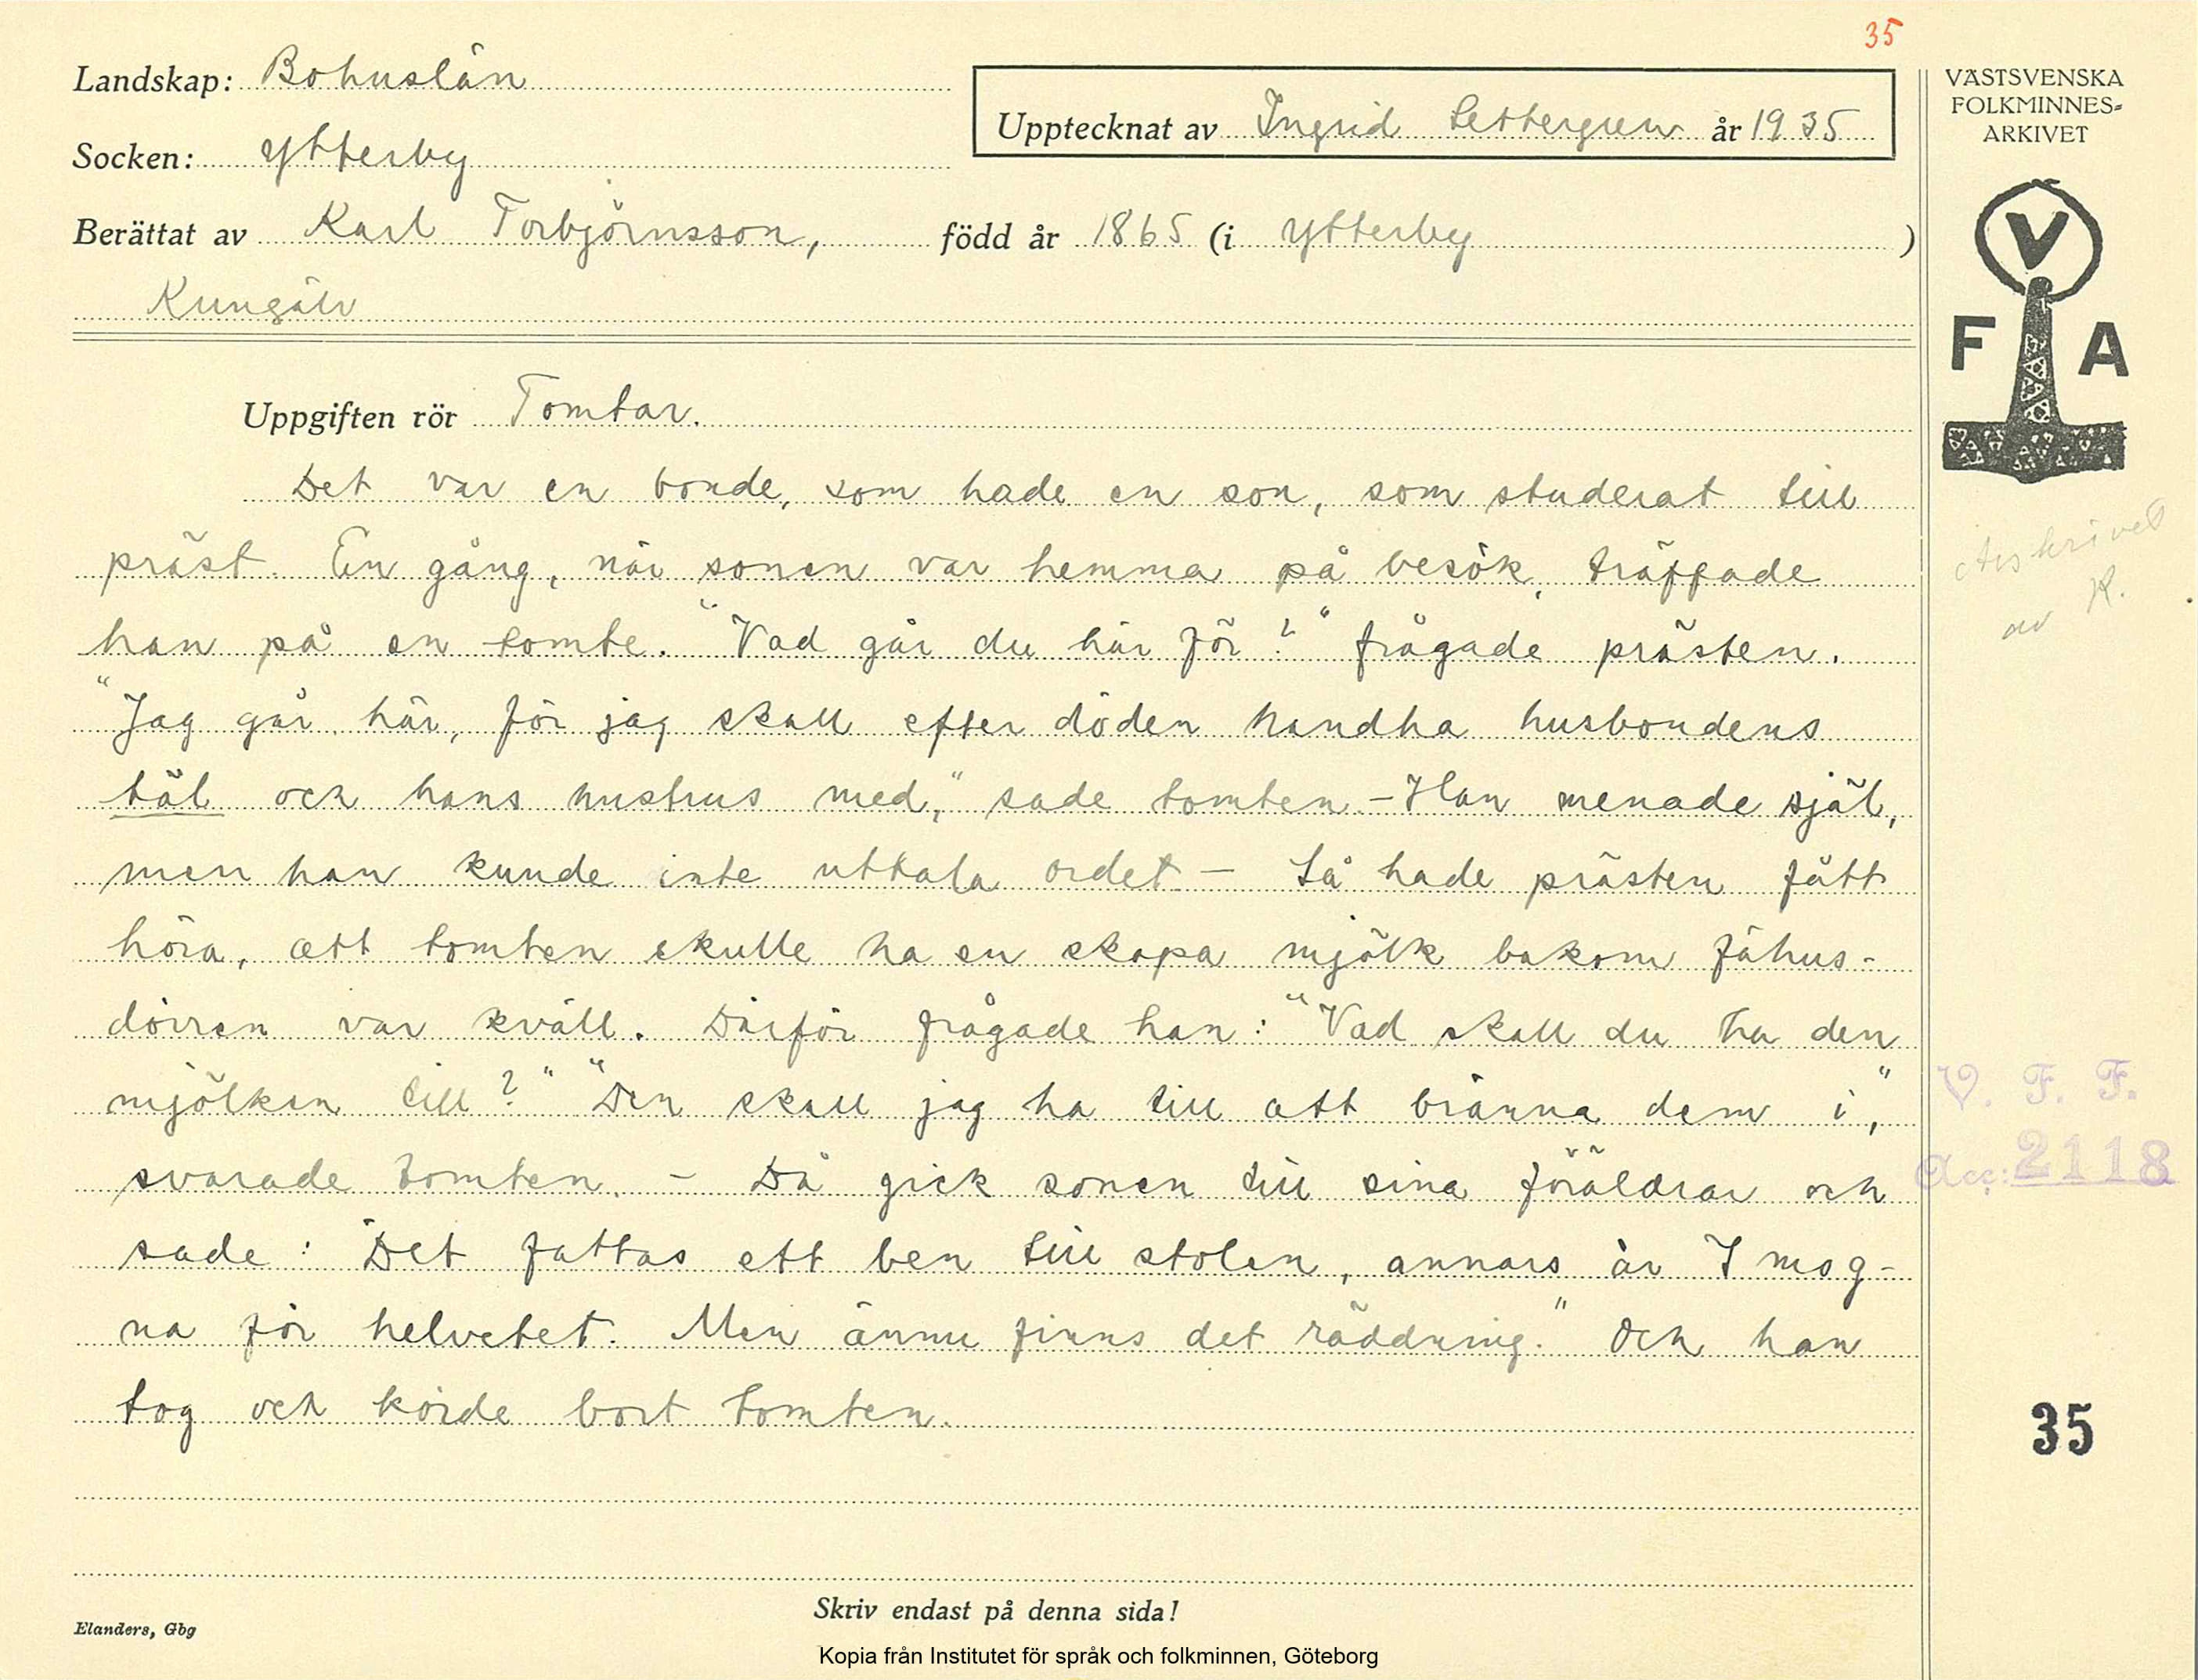 35
Landskap: Bohuslän
Socken: Ytterby
Upptecknat av Ingrid Settergren år 1935
Berättat av Karl Torbjörnsson, född år 1865 (i Ytterby )
Kungälv
Uppgiften rör Tomtar.
Det var en bonde, som hade en son, som studerat till
präst. En gång, när sonen var hemma på besök, träffade
han på en tomte. "Vad går du här för?" frågade prästen.
"Jag går här, för jag skall efter döden handha husbondens
täl och hans hustrus med," sade tomten – Han menade själ,
men han kunde inte uttala ordet – Så hade prästen fått
höra, att tomten skulle ha en skopa mjölk bakom fähus-
dörren var kväll. Därför frågade han: "Vad skall du ha den
mjölken till?" "Den skall jag ha till att bränna dem i,"
svarade tomten. – Då gick sonen till sina föräldrar och
sade: Det fattas ett ben till stolen, annars är I mog-
na för helvetet. Men ännu finns det räddning." Och han
tog och körde bort tomten.
Skriv endast på denna sida!
Elanders, Gbg
Kopia från Institutet för språk och folkminnen, Göteborg
VÄSTSVENSKA
FOLKMINNES-
ARKIVET
V
F A
av K.
V. F. F.
Acc: 2118
35